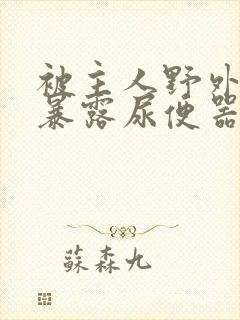 被主人野外
暴露尿便器
蘇森九